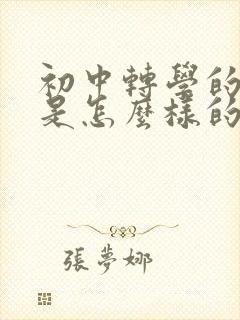 初中轉學的
是怎麼樣的
張夢娜